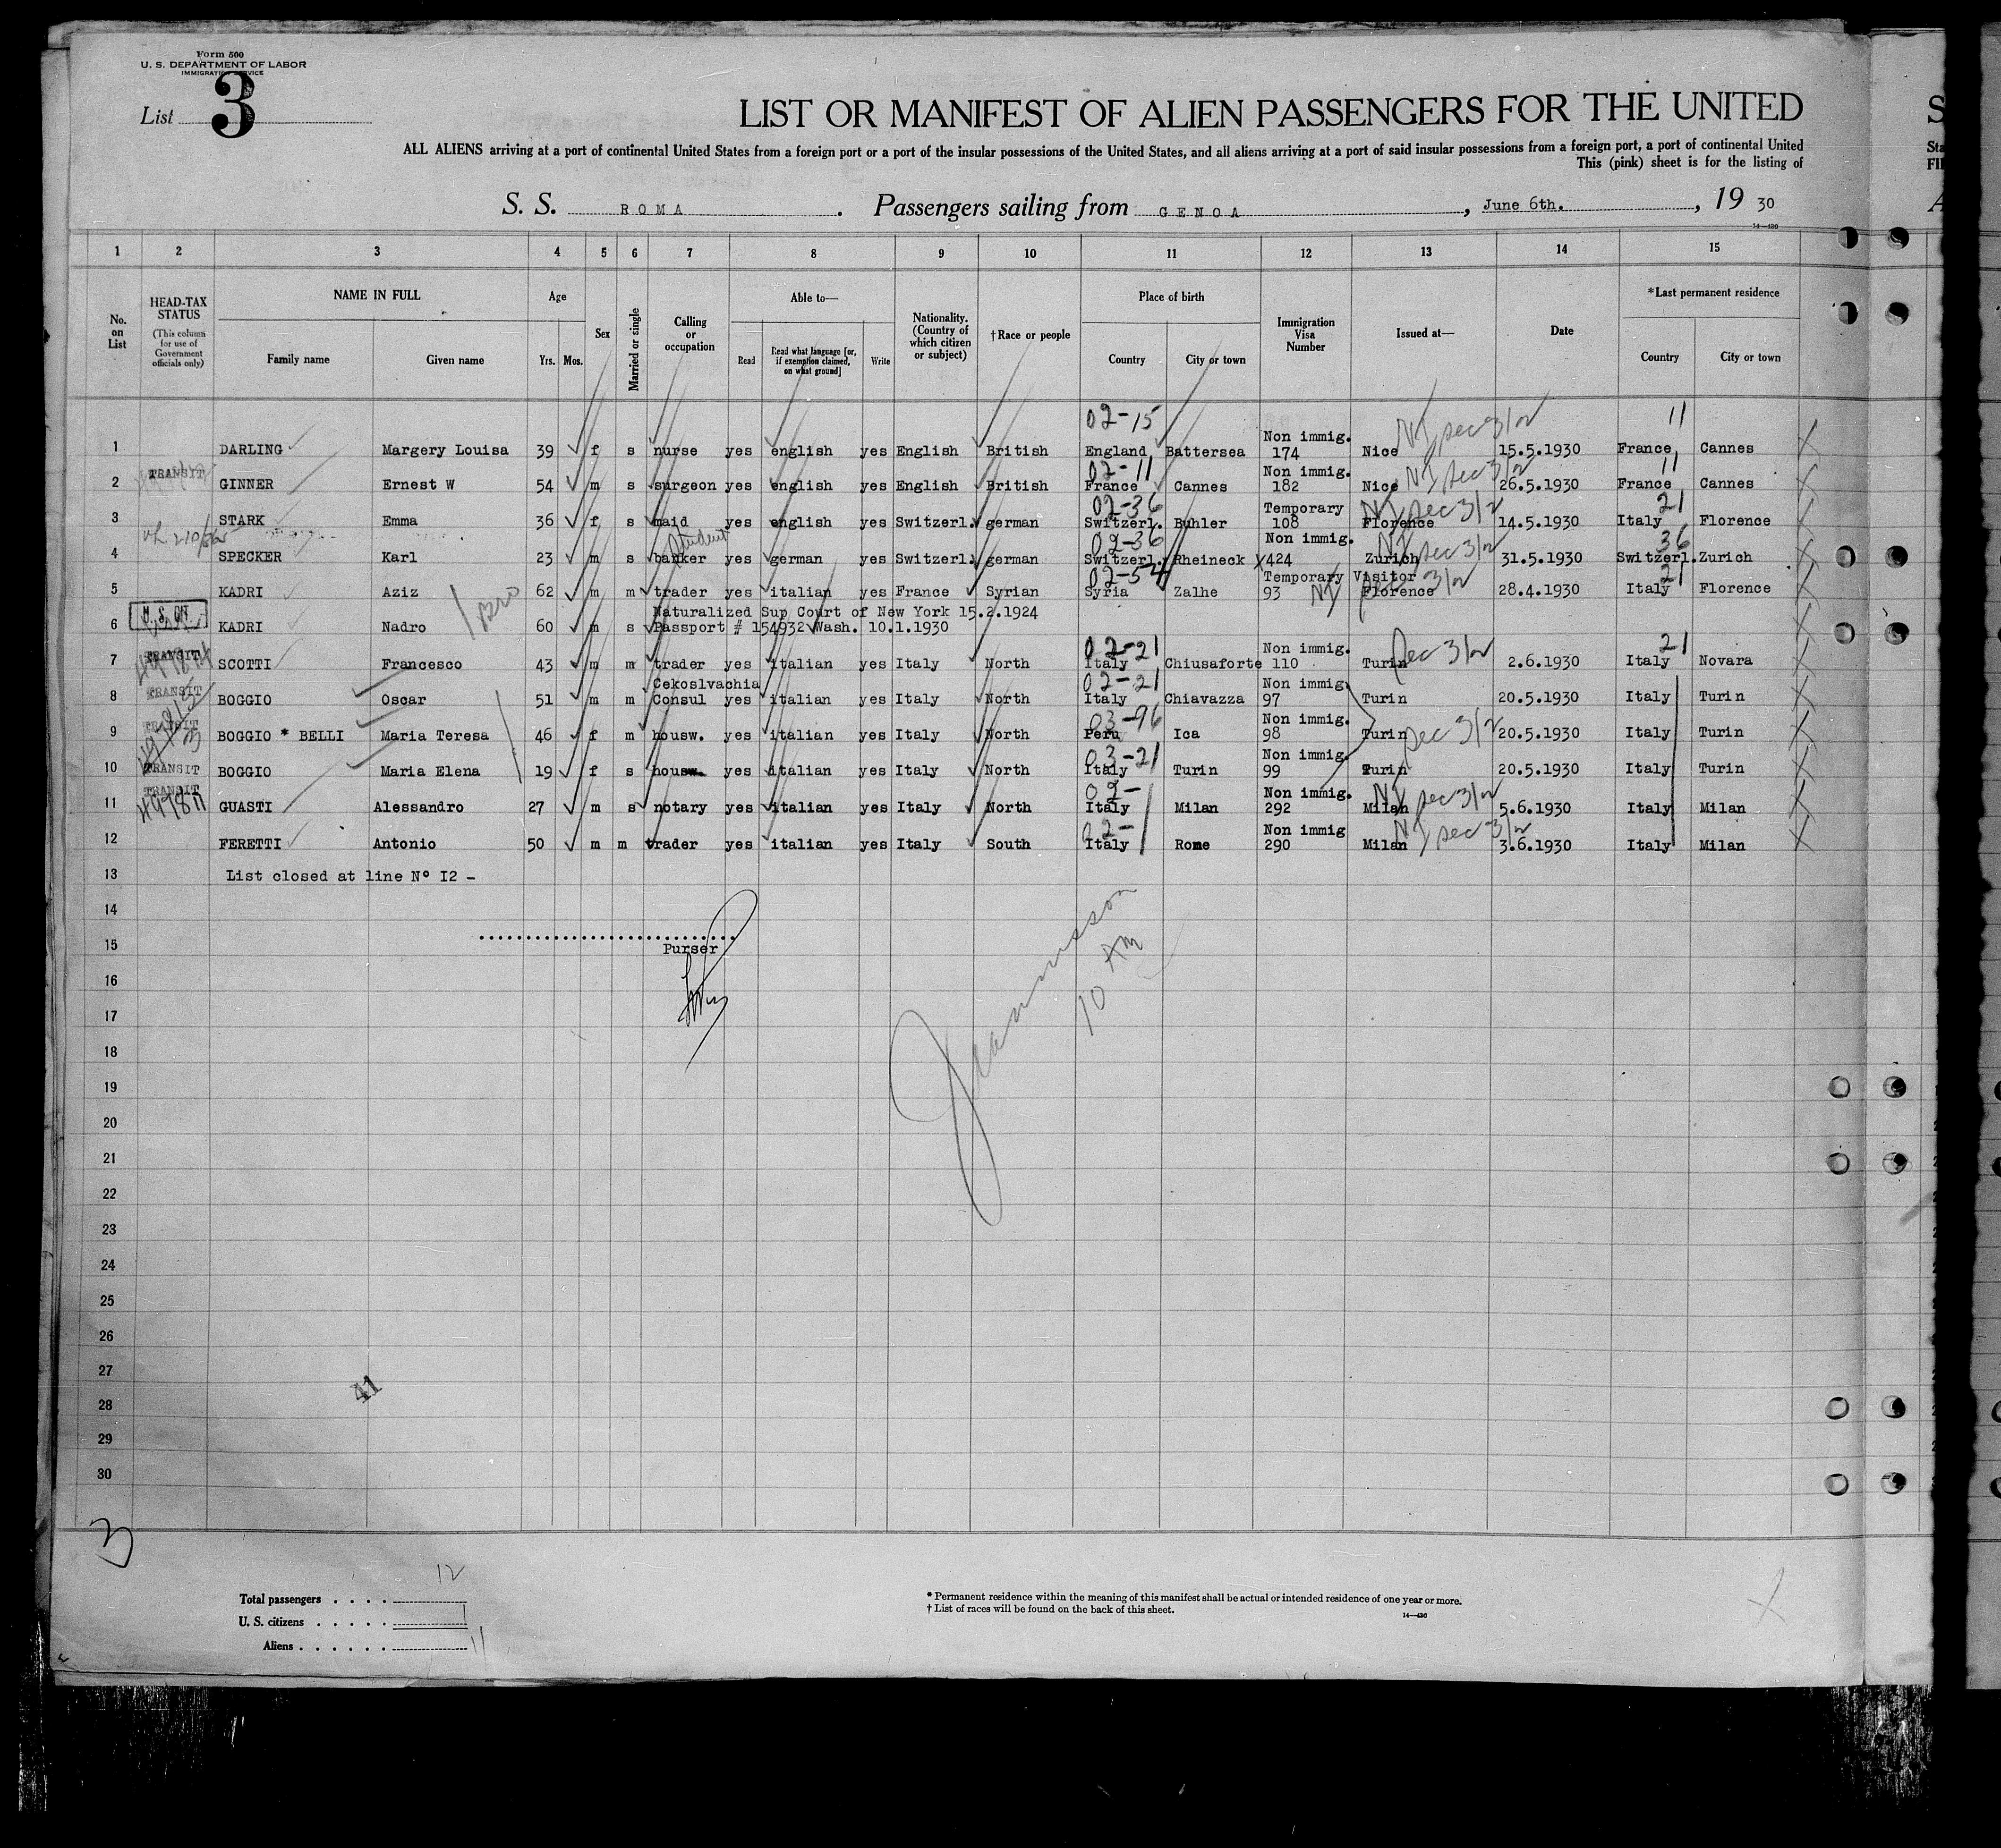 Form 500
U. S. DEPARTMENT OF LABOR
IMMIGRATION SERVICE
List 3
LIST OR MANIFEST OF ALIEN PASSENGERS FOR THE UNITED
ALL ALIENS arriving at a port of continental United States from a foreign port or a port of the insular possessions of the United States, and all aliens arriving at a port of said insular possessions from a foreign port, a port of continental United
This (pink) sheet is for the listing of
S. S. ROMA . Passengers sailing from GENOA , June 6th. , 19 30
14—430
1 2 3 4 5 6 7 8 9 10 11 12 13 14 15
No. on List
HEAD-TAX STATUS (This column for use of Government officials only)
NAME IN FULL
Family name Given name
Age Yrs. Mos.
Sex
Married or single
Calling or occupation
Able to—
Read Read what language [or, if exemption claimed, on what ground] Write
Nationality. (Country of which citizen or subject)
†Race or people
Place of birth
Country City or town
Immigration Visa Number
Issued at—
Date
*Last permanent residence
Country City or town
02-15 11
Non immig.
1 DARLING Margery Louisa 39 f s nurse yes english yes English British England Battersea 174 Nice 15.5.1930 France Cannes
TRANSIT 02-11 Non immig. 11
2 GINNER Ernest W 54 m s surgeon yes english yes English British France Cannes 182 Nice 26.5.1930 France Cannes
02-36 Temporary 21
3 STARK Emma 36 f s maid yes english yes Switzerl. german Switzerl. Buhler 108 Florence 14.5.1930 Italy Florence
student 02-36 Non immig. 36
4 SPECKER Karl 23 m s banker yes german yes Switzerl. german Switzerl. Rheineck 424 Zurich 31.5.1930 Switzerl. Zurich
02-54 Temporary Visitor 21
5 KADRI Aziz 62 m m trader yes italian yes France Syrian Syria Zalhe 93 Florence 28.4.1930 Italy Florence
U. S. CIT. Naturalized Sup Court of New York 15.2.1924
6 KADRI Nadro 60 m s Passport # 154932 Wash. 10.1.1930
TRANSIT 02-21 Non immig. 21
7 SCOTTI Francesco 43 m m trader yes italian yes Italy North Italy Chiusaforte 110 Turin 2.6.1930 Italy Novara
TRANSIT Cekoslvachia 02-21 Non immig.
8 BOGGIO Oscar 51 m m Consul yes italian yes Italy North Italy Chiavazza 97 Turin 20.5.1930 Italy Turin
TRANSIT 03-96 Non immig.
9 BOGGIO * BELLI Maria Teresa 46 f m housw. yes italian yes Italy North Peru Ica 98 Turin 20.5.1930 Italy Turin
TRANSIT 03-21 Non immig.
10 BOGGIO Maria Elena 19 f s housw. yes italian yes Italy North Italy Turin 99 Turin 20.5.1930 Italy Turin
TRANSIT 02- Non immig.
11 GUASTI Alessandro 27 m s notary yes italian yes Italy North Italy Milan 292 Milan 5.6.1930 Italy Milan
02- Non immig
12 FERETTI Antonio 50 m m trader yes italian yes Italy South Italy Rome 290 Milan 3.6.1930 Italy Milan
13 List closed at line Nº I2 -
14
15 Purser
10 AM
16
17
18
19
20
21
22
23
24
25
26
27
41
28
29
30
3
Total passengers . . . . 12
U. S. citizens . . . . . 1
Aliens . . . . . . 11
* Permanent residence within the meaning of this manifest shall be actual or intended residence of one year or more.
† List of races will be found on the back of this sheet.
14—430